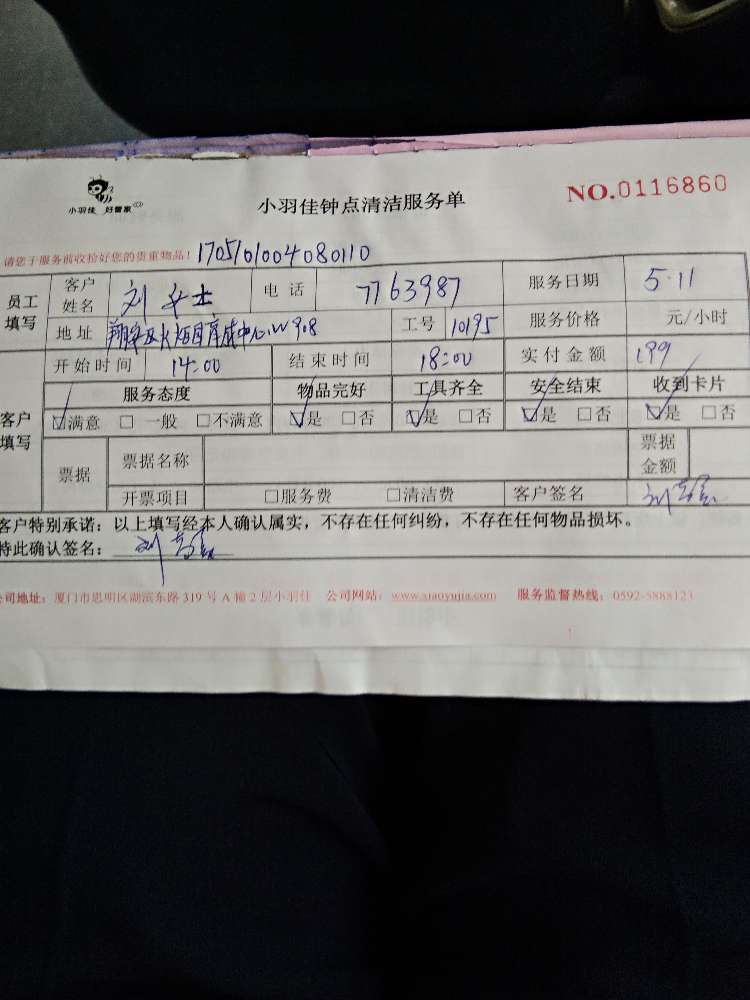 小羽佳 好管家
小羽佳钟点清洁服务单
NO.0116860
请您于服务前收拾好您的贵重物品! 1705101004080110
员工填写 客户姓名 刘女士 电话 7763987 服务日期 5.11
地址 翔安区火炬 中心W908 工号 10195 服务价格 元/小时
客户填写 开始时间 14:00 结束时间 18:00 实付金额 199
服务态度 物品完好 工具齐全 安全结束 收到卡片
☑满意 □一般 □不满意 ☑是 □否 ☑是 □否 ☑是 □否 ☑是 □否
票据 票据名称 票据金额
开票项目 □服务费 □清洁费 客户签名 刘
客户特别承诺:以上填写经本人确认属实,不存在任何纠纷,不存在任何物品损坏。
特此确认签名: 刘
公司地址:厦门市思明区湖滨东路 319 号 A 幢 2 层小羽佳 公司网站:www.xiaoyujia.com 服务监督热线:0592-5888123